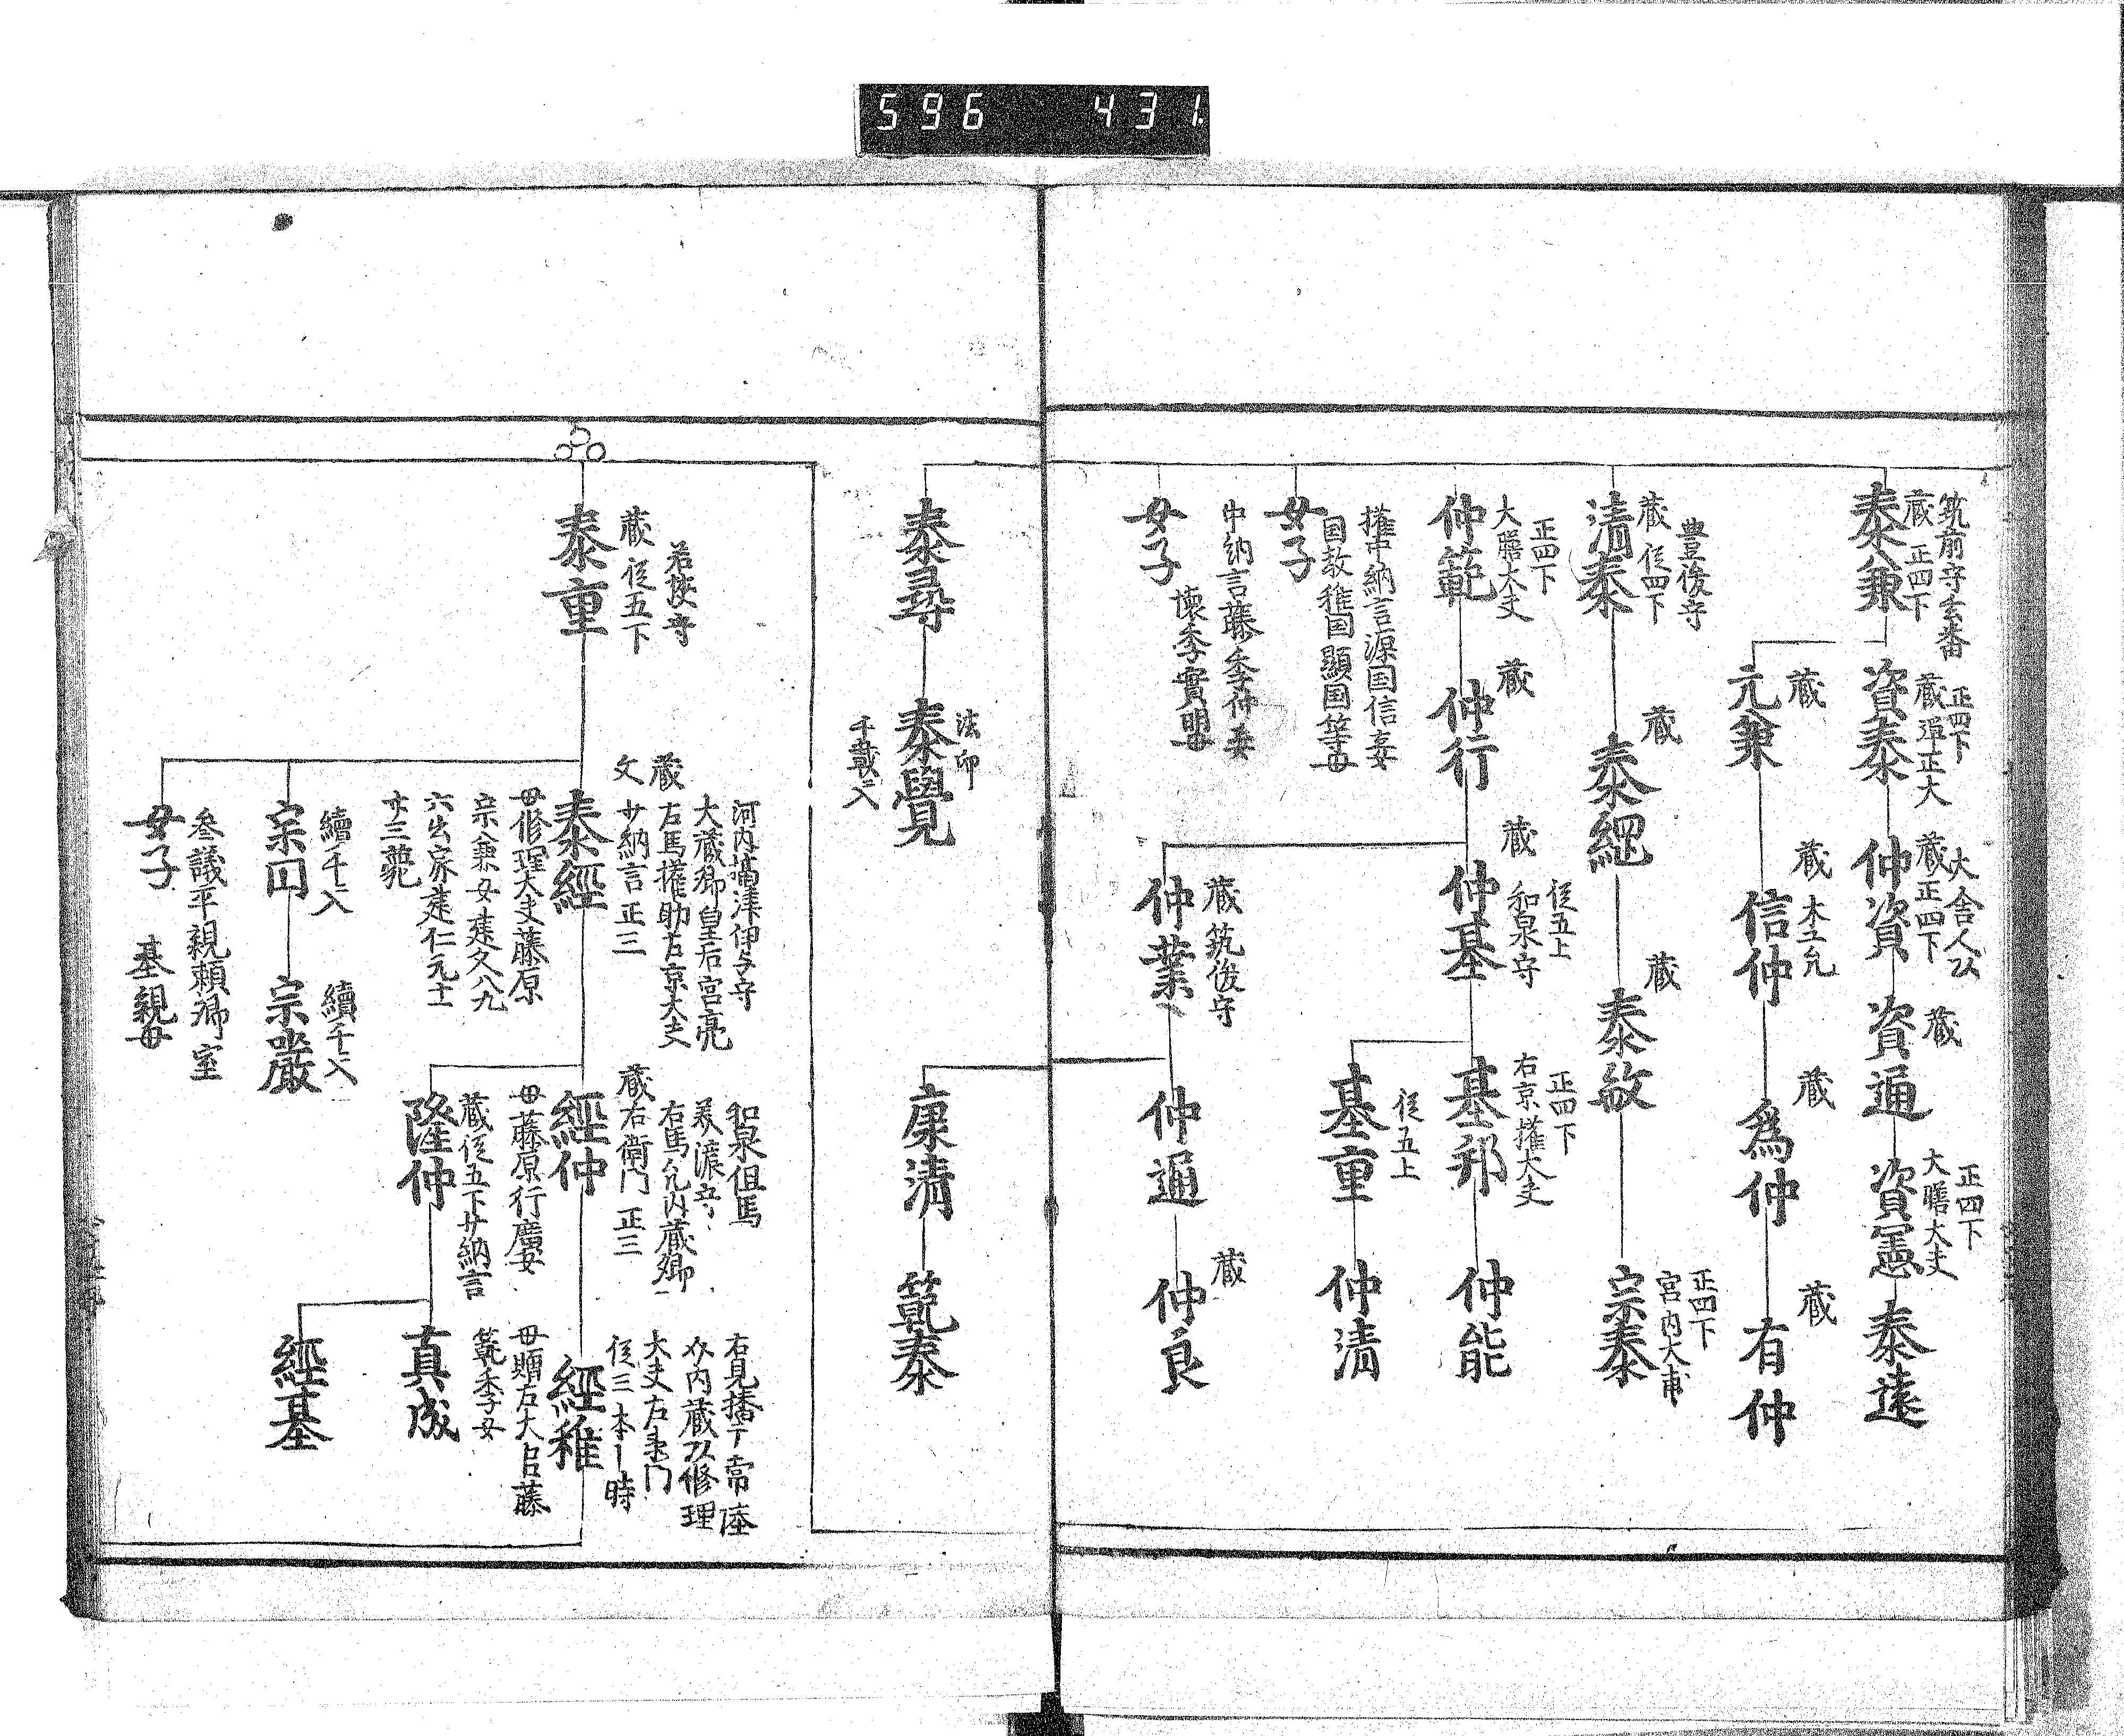 596 431
筑前守玄蕃
蔵 正四下
泰兼
正四下
蔵 弾正大
資泰
大舎人公
蔵 正四下
仲資
蔵
資通
正四下
大膳大夫
資憲
泰遠
蔵
元兼
蔵 木工允
信仲
蔵
為仲
蔵
有仲
豊後守
蔵 従四下
清泰
蔵
泰綱
蔵
泰敛
正四下
宮内大甫
宗泰
正四下
大膳大夫
仲範
蔵
仲行
従五上
蔵 和泉守
仲基
正四下
右京権大夫
基邦
仲能
従五上
基重
仲清
権中納言源国信妾
女子
国教雅国顕国等母
中納言藤季仲妾
女子
懐季實明母
蔵 筑後守
仲業
仲通
蔵
仲良
康清
範泰
泰尋
法印
泰覺
千載入
若狭守
蔵 従五下
泰重
河内摂津伊与守
大蔵卿皇后宮亮
右馬権助右京大夫
蔵
文 少納言 正三
泰經
母修理大夫藤原
宗兼女建久八九
六出家建仁元十一
廿三薨
和泉但馬
美濃守
右馬允内蔵卿
蔵 右衛門 正三
經仲
母藤原行廣女
石見播丁常陸
内蔵以修理
大夫左門
従三 本一時
經稚
母贈左大臣藤
範季女
蔵 従五下少納言
隆仲
真成
經基
續千入
宗円
續千入
宗嚴
参議平親頼卿室
女子
基親母